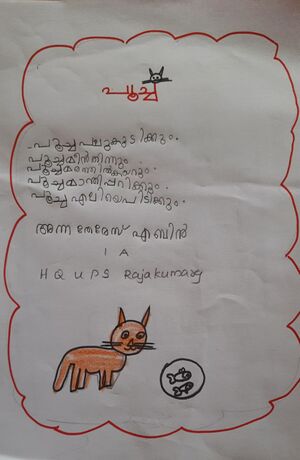 പൂച്ച
പൂച്ച പലുകുടിക്കും.
പൂച്ചമീൻതിന്നും.
പൂച്ചമരത്തിൽകയറും.
പൂച്ചമാന്തിപ്പറിക്കും.
പൂച്ച എലിയെപിടിക്കും.
അന്ന തേരേസ് എബിൻ
I A
H Q U P S Rajakumary